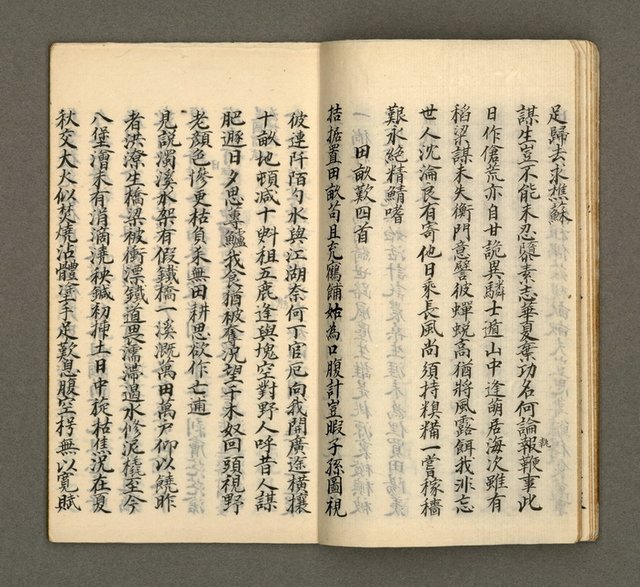 足歸去來樵蘇
謀生豈不能未忍隳素志華夏奪功名何論報鞭事此
執
日作傖荒亦自甘詭異驎士遁山中逢萌居海次雖有
稻梁謀未失衡門意譬彼蟬蛻高猶將風露餌我非忘
世人沈淪良有寄他日乘長風尚須持糗糒一嘗稼穡
艱永絕精鯖嗜
田畝歎四首
拮据置田畝苟且充鶉餔姑為口腹計豈暇子孫圖視
彼連阡陌勺水與江湖奈何丁官厄向我開廣途橫攘
十畝地頓減十斞租五鹿逢與塊空對野人呼昔人謀
肥遯日夕思蓴鱸我食猶被奪況望千木奴回頭視野
老顏色慘更枯負耒無田耕思欲作亡逋
見說濁溪水架有假鐵橋一溪溉萬田萬戶仰以饒昨
者洪潦生橋梁被衝漂鐵道畏濡滯過水修泥橇至今
八堡渻未有消滴澆秧鍼初掃土日中旋枯焦況在夏
秋交大火似焚燒沾體塗手足歎息腹空枵無以寬賦